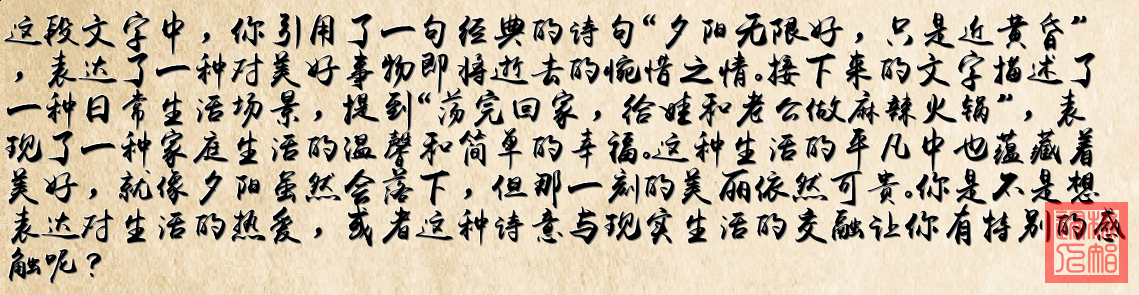 这段文字中，你引用了一句经典的诗句“夕阳无限好，只是近黄昏”
，表达了一种对美好事物即将逝去的惋惜之情。接下来的文字描述了
一种日常生活场景，提到“荡完回家，给娃和老公做麻辣火锅”，表
现了一种家庭生活的温馨和简单的幸福。这种生活的平凡中也蕴藏着
美好，就像夕阳虽然会落下，但那一刻的美丽依然可贵。你是不是想
表达对生活的热爱，或者这种诗意与现实生活的交融让你有特别的感
触呢？